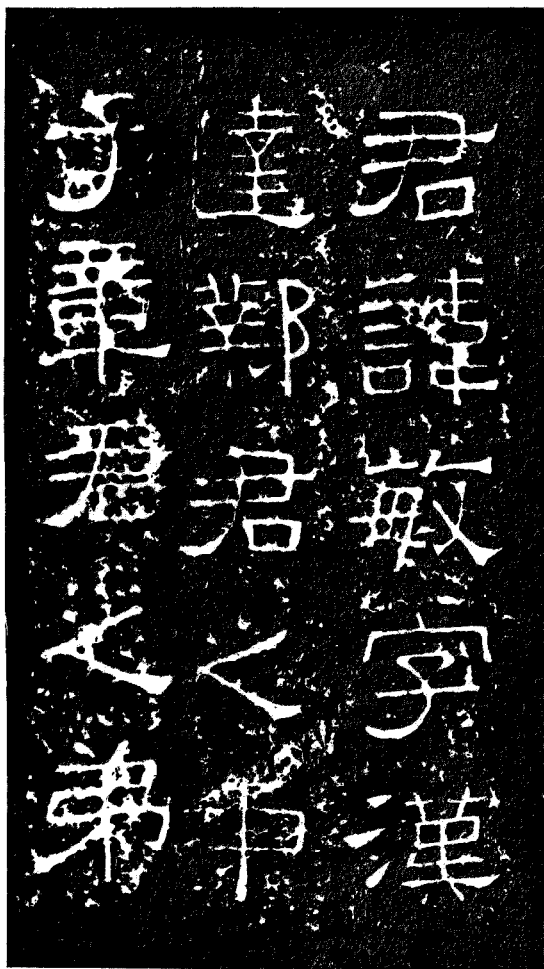 君諱敏字漢
達鄭君之中
子章君之弟